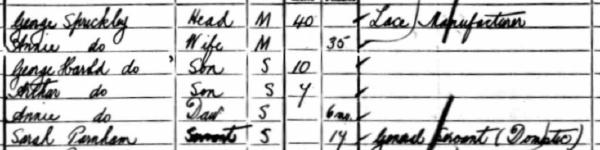 George Spruckley Head M 40 Lace Manufacturer
Annie do Wife M 35
George Harold do Son S 10
Arthur do Son S 7
Annie do Daur S 6 mo.
Sarah Parnham Servant S 17 General Servant (Domestic)